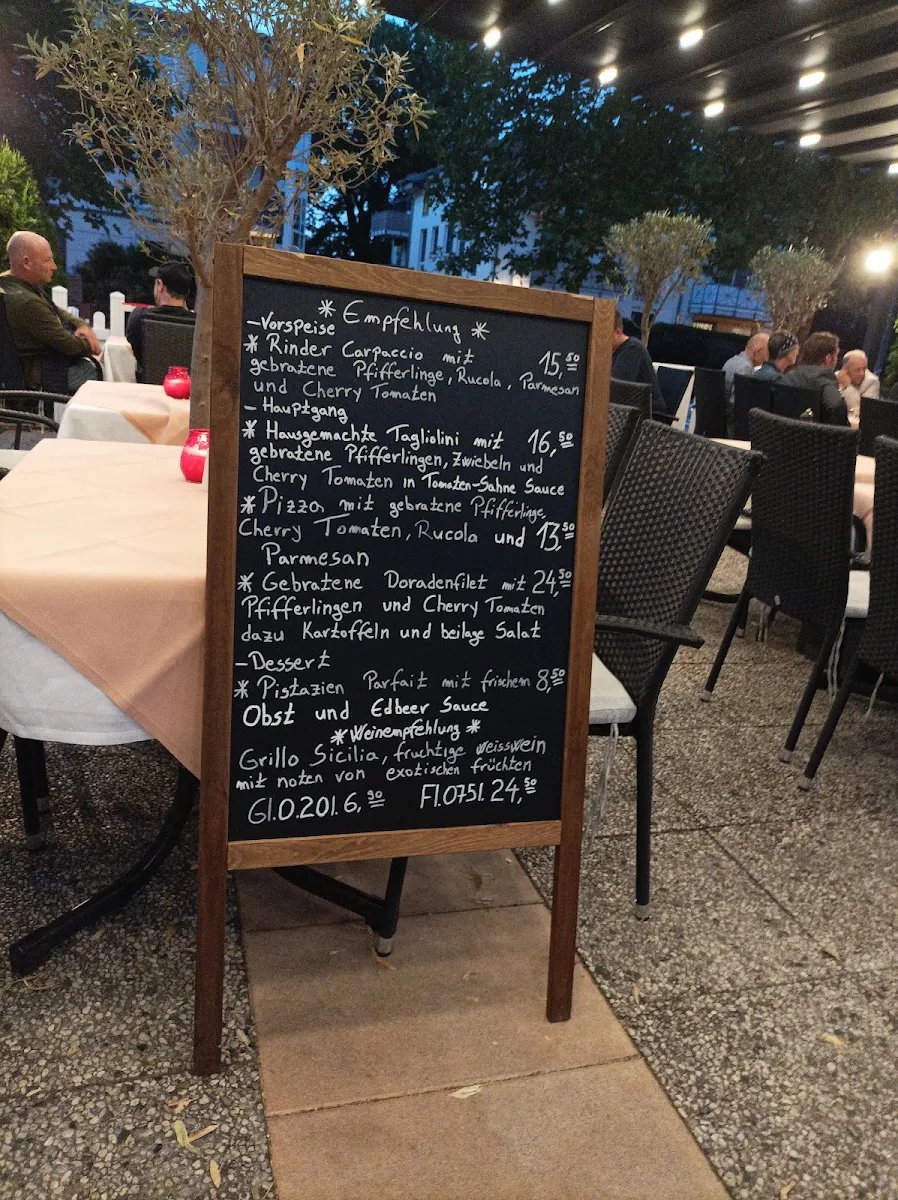 * Empfehlung *
-Vorspeise
* Rinder Carpaccio mit 15,50
gebratene Pfifferlinge, Rucola, Parmesan
und Cherry Tomaten
- Hauptgang
* Hausgemachte Tagliolini mit 16,50
gebratene Pfifferlingen, Zwiebeln und
Cherry Tomaten in Tomaten-Sahne Sauce
* Pizza mit gebratene Pfifferlinge,
Cherry Tomaten, Rucola und 13,50
Parmesan
* Gebratene Doradenfilet mit 24,50
Pfifferlingen und Cherry Tomaten
dazu Kartoffeln und beilage Salat
-Dessert
* Pistazien Parfait mit frischem 8,50
Obst und Edbeer Sauce
*Weinempfehlung *
Grillo Sicilia, fruchtige weisswein
mit noten von exotischen früchten
Gl.0.20l. 6,90 Fl.075l. 24,50